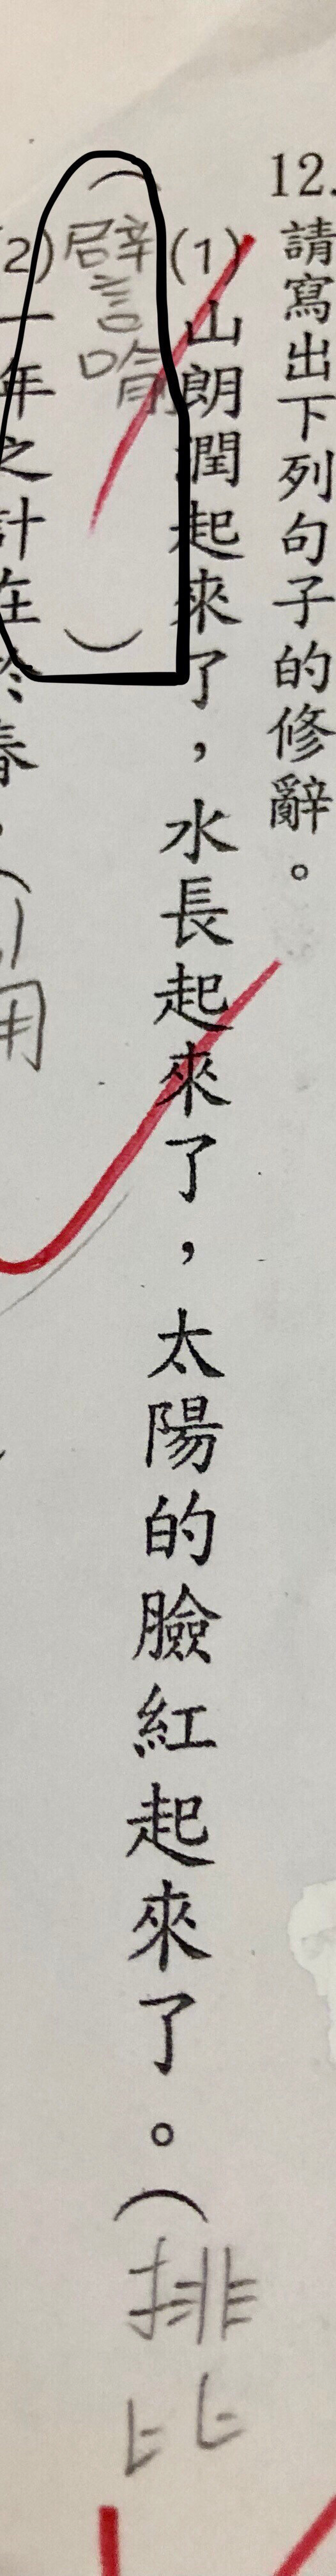 12.請寫出下列句子的修辭。
(1)山朗潤起來了，水長起來了，太陽的臉紅起來了。(排比
(譬喻)
2)一年之計在於春，(引用